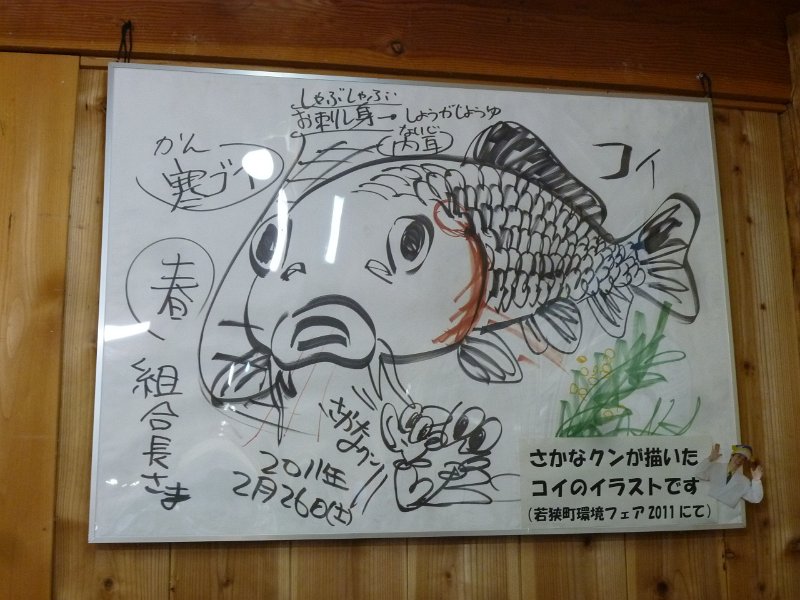 しゃぶしゃぶ
お刺し身→しょうがじょうゆ
ないじ
内耳
コイ
かん
寒ブイ
春
組合長さま
さかな
クン
2011年
2月26日(土)
さかなクンが描いた
コイのイラストです
(若狭町環境フェア2011にて)